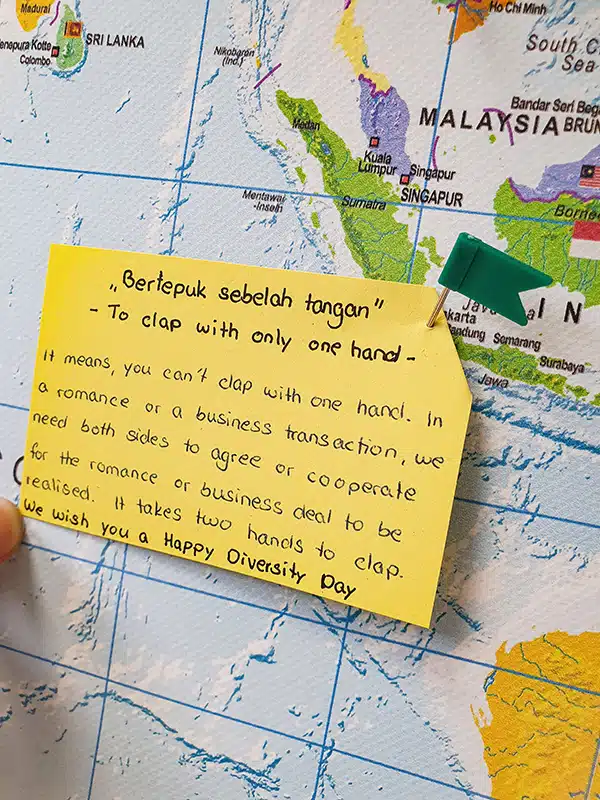 Madurai
SRI LANKA
Colombo
Nikobaren
(Ind.)
Ho Chi Minh
South C
Sea
Bandar Seri Bega
MALAYSIA
BRUN
Medan
Kuala
Lumpur
Singapur
SINGAPUR
Mentawai
-Inseln
Sumatra
Borneo
IN
Java
karta
andung
Semarang
Surabaya
Jawa
„Bertepuk sebelah tangan"
- To clap with only one hand -
It means, you can't clap with one hand. In
a romance or a business transaction, we
need both sides to agree or cooperate
for the romance or business deal to be
realised. It takes two hands to clap.
We wish you a Happy Diversity Day